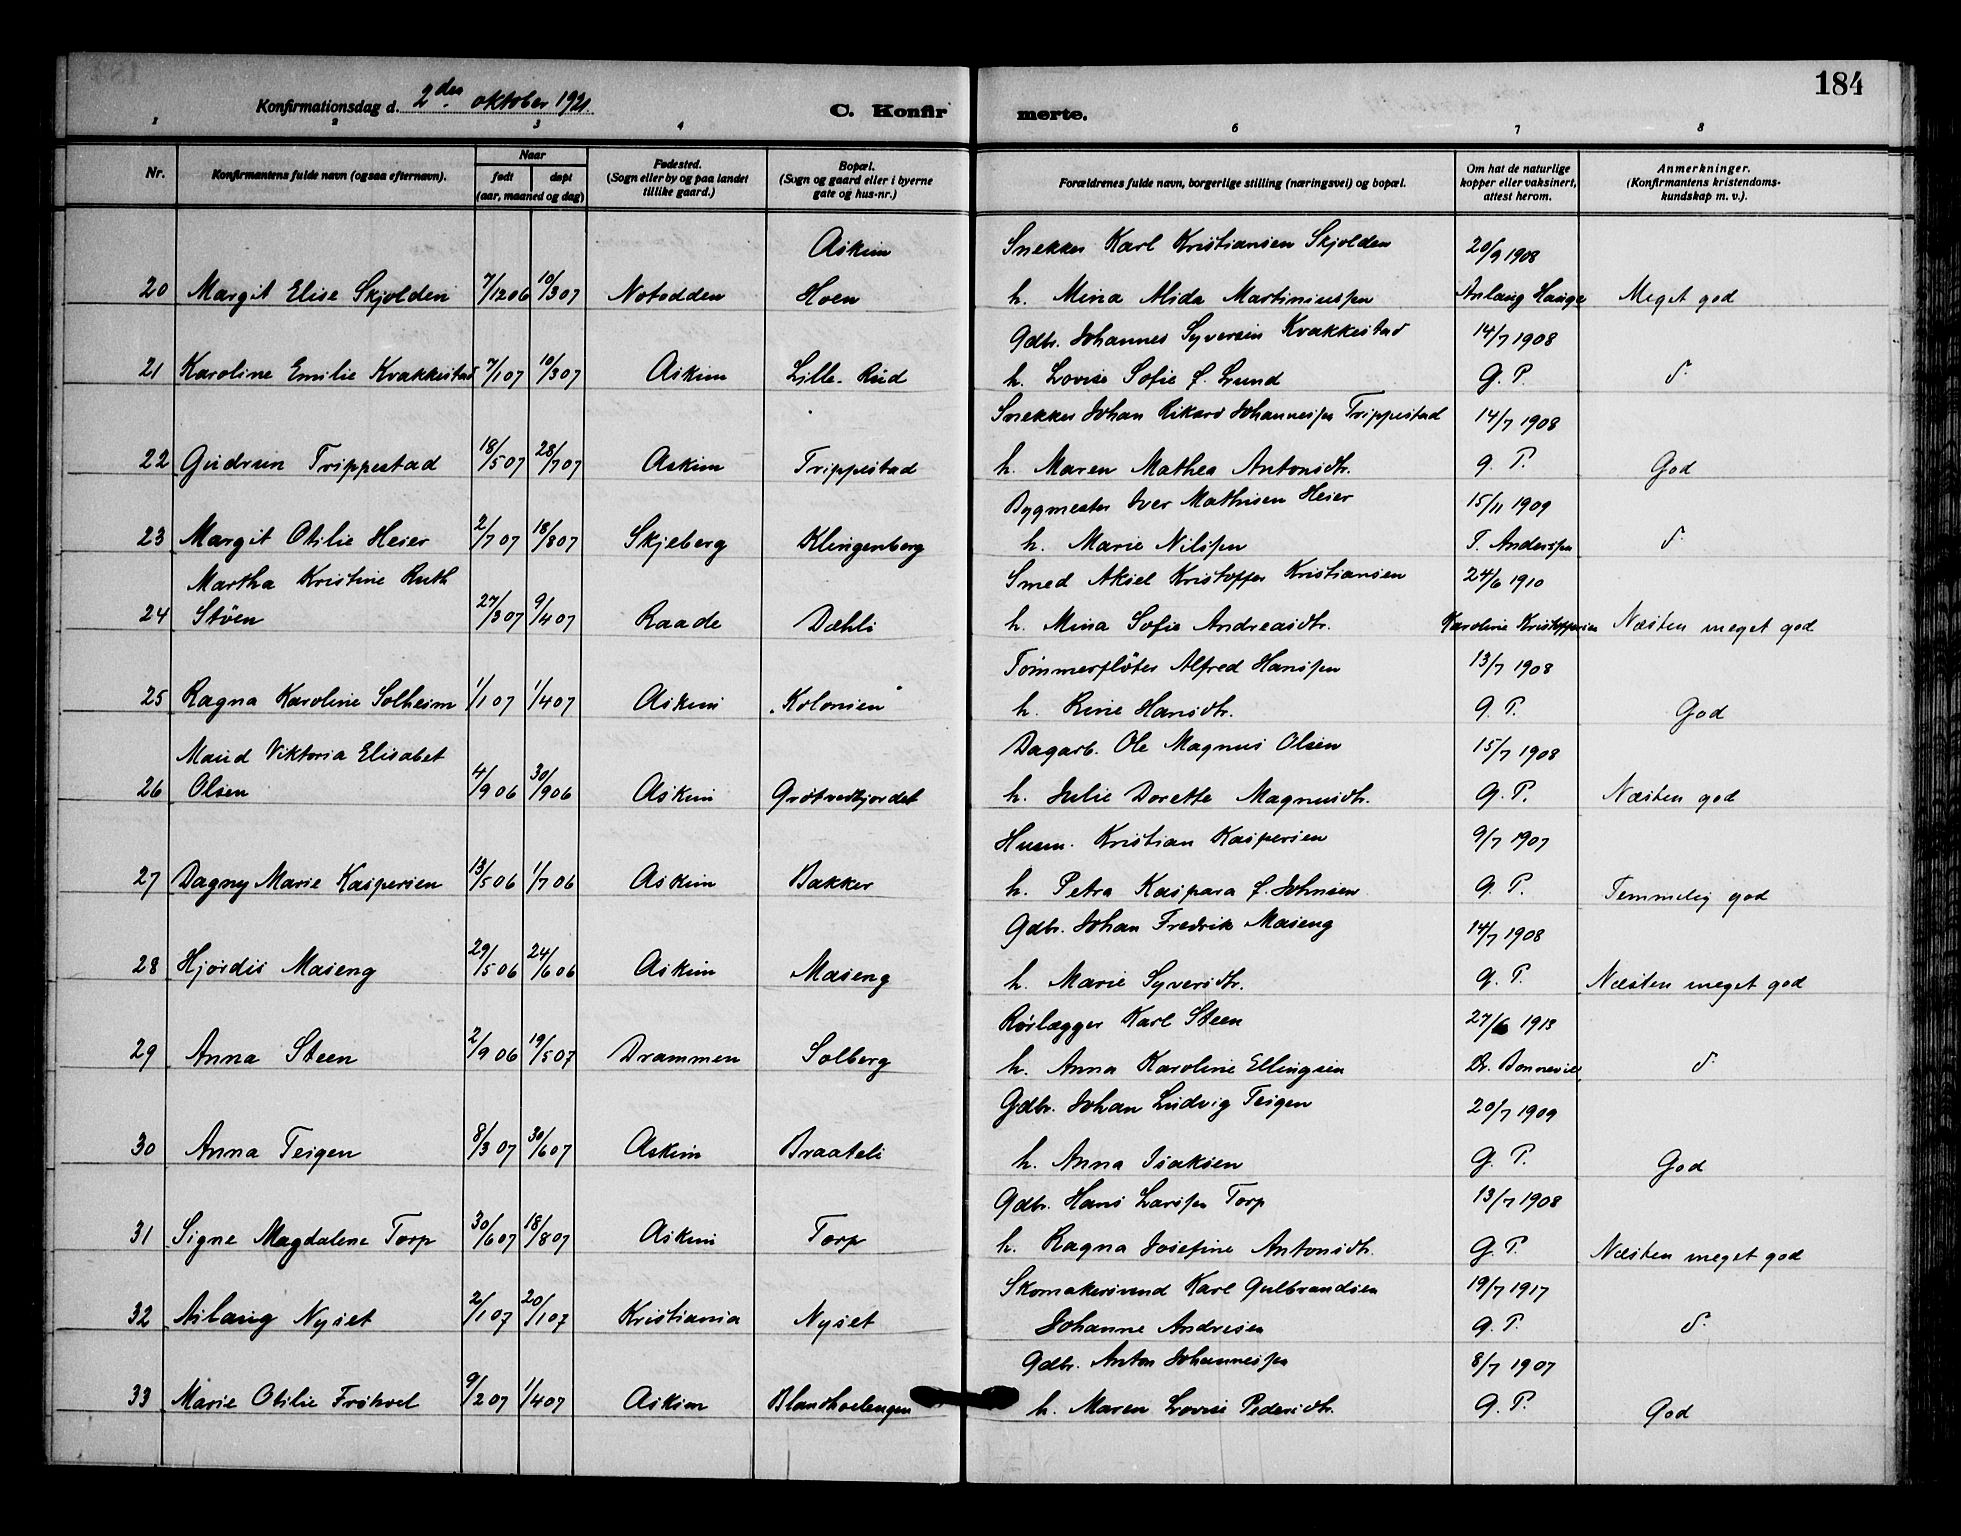 184
Konfirmationsdag d. 2den oktober 1921. C. Konfirmerte.
1 2 3 4 6 7 8
Nr. Konfirmantens fulde navn (ogsaa efternavn). Naar født døpt (aar, maaned og dag) Fødested. (Sogn eller by og paa landet tillike gaard.) Bopæl. (Sogn og gaard eller i byerne gate og hus-nr.) Forældrenes fulde navn, borgerlige stilling (næringsvei) og bopæl. Om hat de naturlige kopper eller vaksinert, attest herom. Anmerkninger. (Konfirmantens kristendomskundskap m. v.).
Askim Snekker Karl Kristiansen Skjolden 20/9 1908
20 Margit Elise Skjolden 7/12 06 10/3 07 Notodden Hoen h. Mina Alida Martiniussen Anlaug Hauge Meget god
Gdbr. Johannes Syversen Kvakkestad 14/7 1908
21 Karoline Emilie Kvakkestad 7/1 07 10/3 07 Askim Lille-Rud h. Lovise Sofie f. Lund G. P. d:
Snekker Johan Rikard Johannessen Trippestad 14/7 1908
22 Gudrun Trippestad 18/5 07 28/7 07 Askim Trippestad h. Maren Mathea Antonsdtr. G. P. God
Bygmester Iver Mathisen Heier 15/11 1909
23 Margit Otilie Heier 2/7 07 18/8 07 Skjeberg Klingenberg h. Marie Nilssen T. Anderssen d:
Martha Kristine Ruth Smed Aksel Kristoffer Kristiansen 24/6 1910
24 Støen 27/3 07 9/4 07 Raade Dæhli h. Mina Sofie Andreasdtr. Karoline Kristoffersen Næsten meget god
Tømmerfløter Alfred Hanssen 13/7 1908
25 Ragna Karoline Solheim 1/1 07 1/4 07 Askim "Kolonien" h. Rine Hansdtr. G. P. God
Maud Viktoria Elisabet Dagarb. Ole Magnus Olsen 15/7 1908
26 Olsen 4/9 06 30/9 06 Askim Grøtvedtjordet h. Julie Dorette Magnusdtr. G. P. Næsten god
Husm. Kristian Kaspersen 9/7 1907
27 Dagny Marie Kaspersen 13/5 06 1/7 06 Askim Bakker h. Petra Kaspara f. Johnsen G. P. Temmelig god
Gdbr. Johan Fredrik Maseng 14/7 1908
28 Hjørdis Maseng 29/5 06 24/6 06 Askim Maseng h. Marie Syversdtr. G. P. Næsten meget god
Rørlægger Karl Steen 27/6 1913
29 Anna Steen 2/9 06 19/5 07 Drammen Solberg h. Anna Karoline Ellingsen Dr. Bonnevie d:
Gdbr. Johan Ludvig Teigen 20/7 1909
30 Anna Teigen 8/3 07 30/6 07 Askim Braateli h. Anna Isaksen G. P. God
Gdbr. Hans Larssen Torp 13/7 1908
31 Signe Magdalene Torp 30/6 07 18/8 07 Askim Torp h. Ragna Josefine Antonsdtr. G. P. Næsten meget god
Skomakersvend Karl Gulbrandsen 19/7 1917
32 Aslaug Nyset 2/1 07 20/1 07 Kristiania Nyset Johanne Andresen G. P. d:
Gdbr. Anton Johannessen 8/7 1907
33 Marie Otilie Frøhvel 9/2 07 1/4 07 Askim h. Maren Lovise Pedersdtr. G. P. God